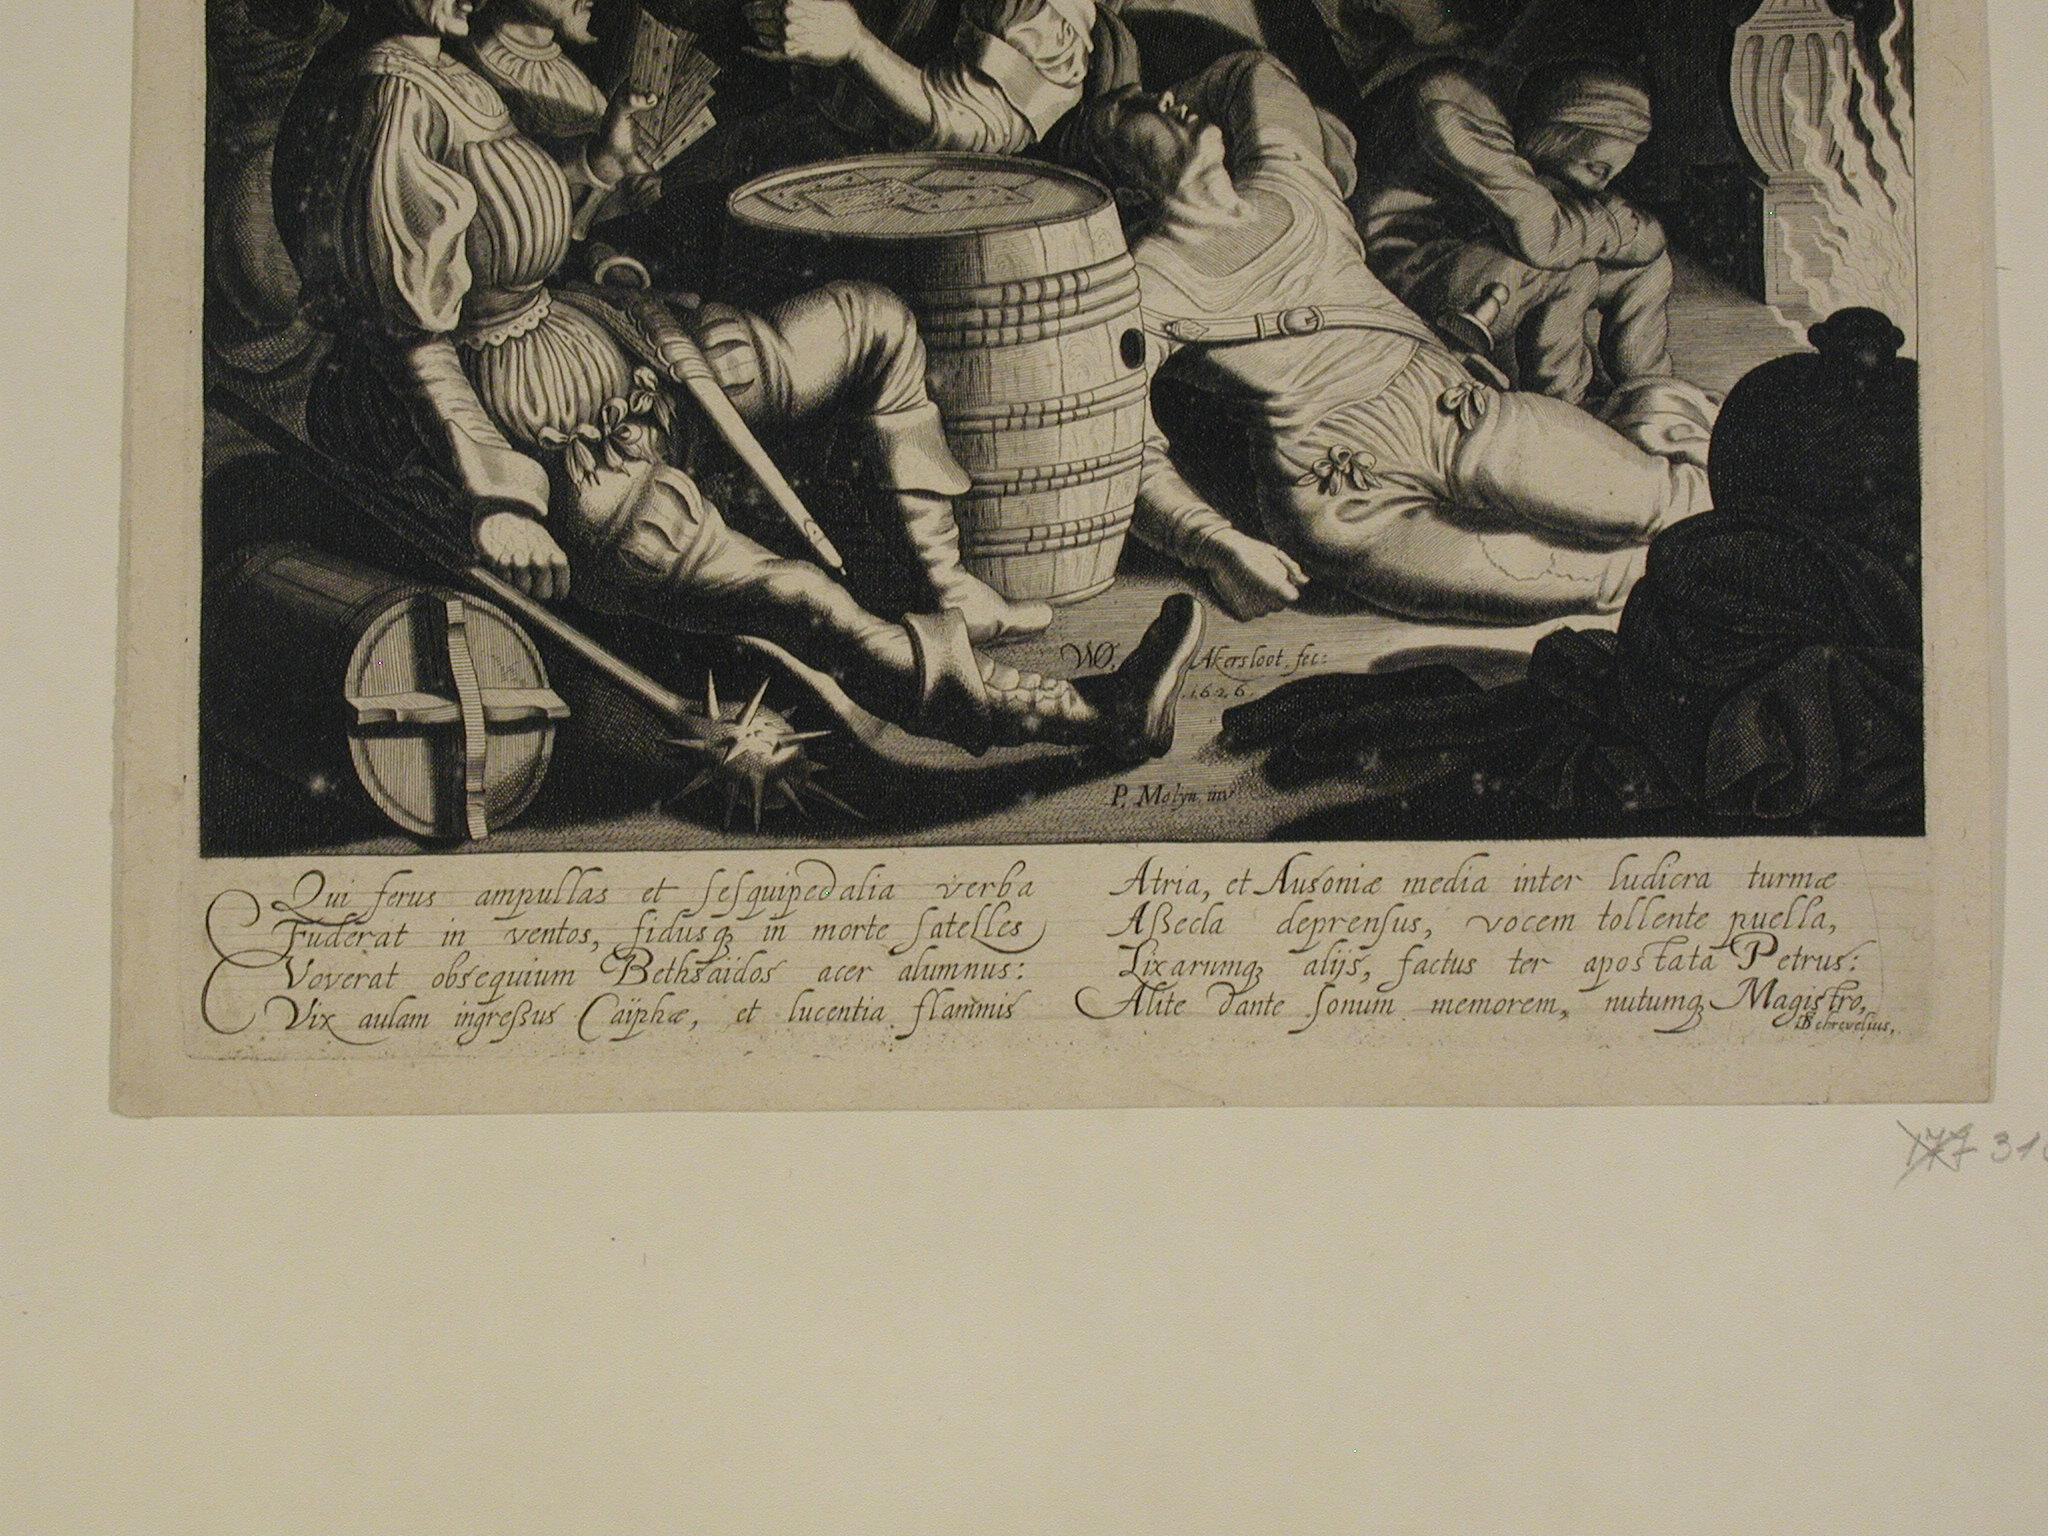 WO. Akersloot. fec:
.1626.
P. Molyn. inv
Qui ferus ampullas et sesquipedalia verba
Fuderat in ventos, fidusq, in morte satelles
Voverat obsequium Bethsaidos acer alumnus:
Vix aulam ingreßus Caiiphæ, et lucentia flammis
Atria, et Ausoniæ media inter ludicra turmæ
Aßecla deprensus, vocem tollente puella,
Lixarumq, alijs, factus ter apostata Petrus:
Alite dante sonum memorem, nutumq, Magistro,
Schrevelius,